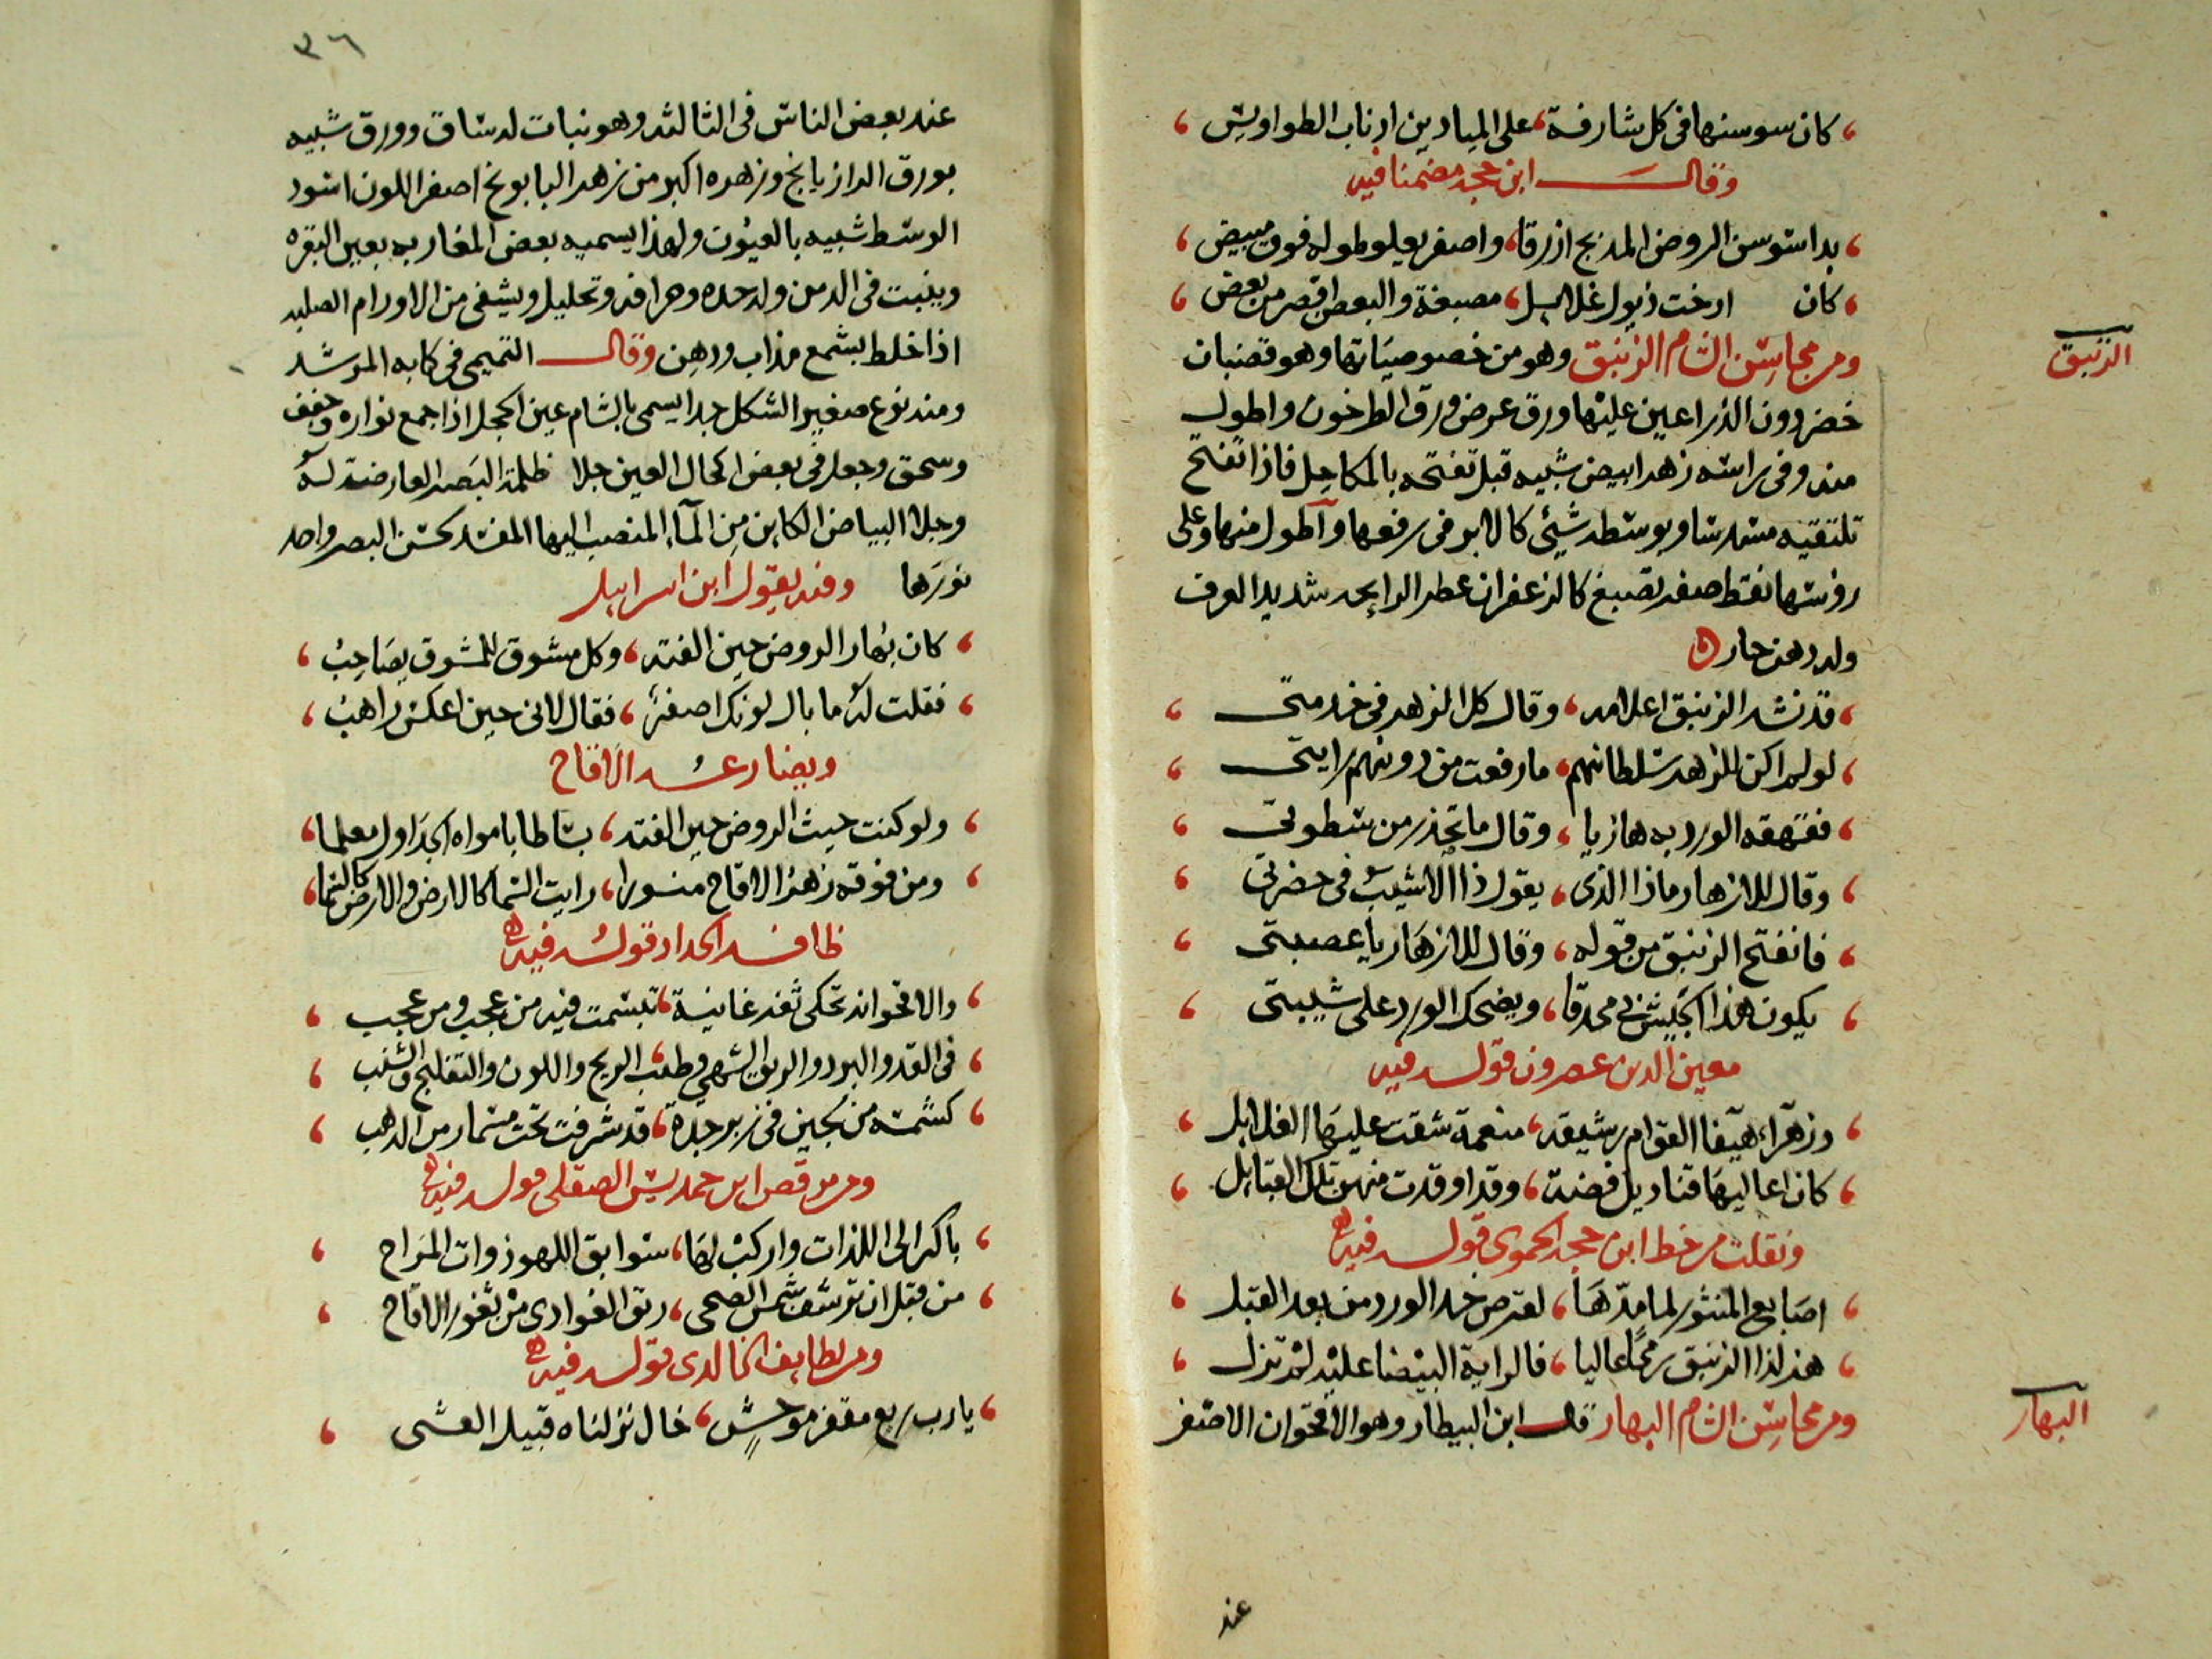 كان سوسنها في كل شارفة، على الميادين اذناب الطواويس
وقال ابن حجة مضمنا فيه
بدا سوسن الروض المدبج ازرقا، واصفر يعلو طوله فوق مبيض
كان ارخت ذيول غلايل، مصبغة والبعض اقصر من بعض
الزنبق
ومن محاسن الشام الزنبق وهو من خصوصياتها وهو قضبان
خضر دون الذراعين عليها ورق عرض ورق الطرخون واطول
منه وفي راسه زهر ابيض شبيه قبل تفتحه بالمكاحل فاذا تفتح
مسدسا وبوسطه شيئ كالابر في رفعها واطول منها وعلى
روسها نقط صفر تصبغ كالزعفران عطر الرايحه شديد العرف
وله دهن حار
قد نشر الزنبق اعلامه، وقال كل الزهر في خدمتي
لو لم اكن للزهر سلطانهم، ما رفعت من دونهم رايتي
فقهقه الورد به هازيا، وقال ما تحذر من سطوتي
وقال للازهار ماذا الذي، يقول ذا الاشيب في حضرتي
فانفتح الزنبق من قوله، وقال للازهار يا عصبتي
يكون هذا الجيش بي محدقا، ويضحك الورد على شيبتي
معين الدين عصرون قوله فيه
وزهراء هيفا القوام رشيقه، منعمة شقت عليها الغلايل
كان اعاليها قناديل فضة، وقد اوقدت منهن تلك القبايل
ونقلت من خط ابن حجة الحموي قوله فيه
اصابع المنثور لما مدها، لقرص خد الورد من بعد القبل
هز لذا الزنبق رمحا عاليا، فالراية البيضا عليه لم تزل
البهار
ومن محاسن الشام البهار قال ابن البيطار وهو الاقحوان الاصفر
عند
٣٦
عند بعض الناس في الثالثه وهو نبات له ساق وورق شبيه
بورق الرازيانج وزهره اكبر من زهر البابونج اصفر اللون اسود
الوسط شبيه بالعيون ولهذا يسميه بعض المغاربه بعين البقره
وينبت في الدمن وله حده وحرافه وتحليل ويشفي من الاورام الصلبه
اذا خلط بشمع مذاب ودهن وقال التميمي في كتابه المرشد
ومنه نوع صغير الشكل جدا يسمى بالشام عين الحجل اذا جمع نواره وجفف
وسحق وجعل في بعض اكحال العين جلا ظلمة البصر العارضة له
وجلا البياض الكاين من المآ المنصب اليها المفسد لحسن البصر واحد
نورها وفيه يقول ابن اسراييل
كان بهار الروض حين الفته، وكل مشوق للمشوق يصاحب
فقلت له ما بال لونك اصفر، فقال لاني حين اعكس راهب
ويضارعه الاقاح
ولو كنت حيث الروض حين الفته، بساطا بامواه الجداول معلما
ومن فوقه زهر الاقاح منورا، رايت السما كالارض والارض كالسما
ظافر الحداد قوله فيه
والاقحوانه تحكي ثغر غانية، تبسمت فيه من عجب ومن عجب
في القد والبرد والريق الشهي وطيب الريح واللون والتفليج والشنب
كشمسة من لجين في زبرجدة، قد شرفت تحت مسمار من الذهب
ومن مرقص ابن حمديس الصقلي قوله فيه
باكر الى اللذات واركب لها، سوابق اللهو ذوات المراح
من قبل ان ترشف شمس الضحى، ريق الغوادي من ثغور الاقاح
ومن لطايف الخالدي قوله فيه
يا رب ربع مقفر موحش، خال نزلناه قبيل العشى